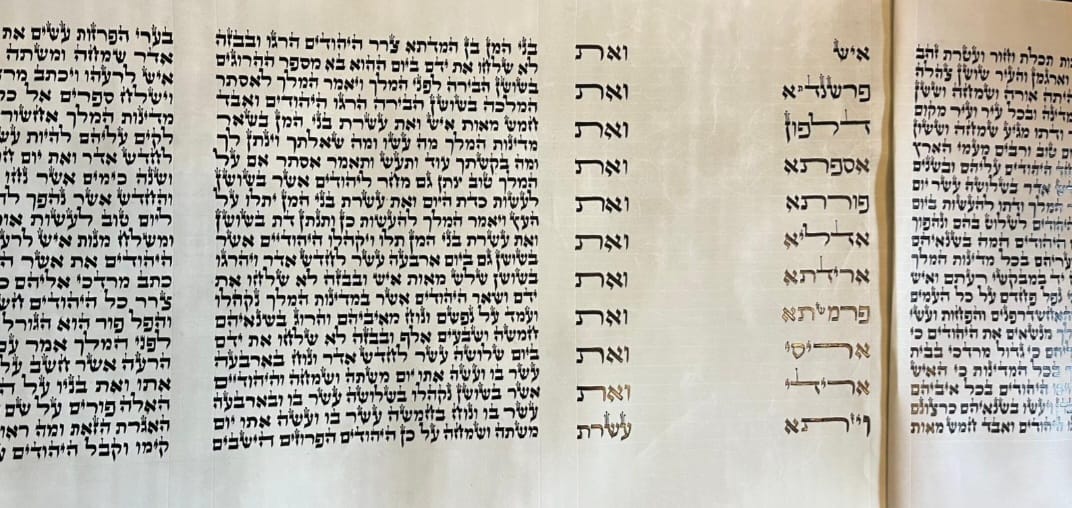 תכלת וחור ועטרת זהב
וארגמן והעיר שושן צהלה
היתה אורה ושמחה וששן
מדינה ובכל עיר ועיר מקום
ודתו מגיע שמחה וששון
טוב ורבים מעמי הארץ
היהודים עליהם ובשנים
אדר בשלושה עשר יום
המלך ודתו להעשות ביום
היהודים לשלוט בהם ונהפוך
היהודים המה בשנאיהם
בעריהם בכל מדינות המלך
יד במבקשי רעתם ואיש
נפל פחדם על כל העמים
והאחשדרפנים והפחות ועשי
מנשאים את היהודים כי
עליהם כי גדול מרדכי בבית
בכל המדינות כי האיש
היהודים בכל איביהם
ויעשו בשנאיהם כרצונם
היהודים ואבד חמש מאות
איש ואת
פרשנדתא ואת
דלפון ואת
אספתא ואת
פורתא ואת
אדליא ואת
ארידתא ואת
פרמשתא ואת
אריסי ואת
ארידי ואת
ויזתא עשרת
בני המן בן המדתא צרר היהודים הרגו ובבזה
לא שלחו את ידם ביום ההוא בא מספר ההרוגים
בשושן הבירה לפני המלך ויאמר המלך לאסתר
המלכה בשושן הבירה הרגו היהודים ואבד
חמש מאות איש ואת עשרת בני המן בשאר
מדינות המלך מה עשו ומה שאלתך וינתן לך
ומה בקשתך עוד ותעש ותאמר אסתר אם על
המלך טוב ינתן גם מחר ליהודים אשר בשושן
לעשות כדת היום ואת עשרת בני המן יתלו על
העץ ויאמר המלך להעשות כן ותנתן דת בשושן
ואת עשרת בני המן תלו ויקהלו היהודיים אשר
בשושן גם ביום ארבעה עשר לחדש אדר ויהרגו
בשושן שלש מאות איש ובבזה לא שלחו את
ידם ושאר היהודים אשר במדינות המלך נקהלו
ועמד על נפשם ונוח מאיביהם והרוג בשנאיהם
חמשה ושבעים אלף ובבזה לא שלחו את ידם
ביום שלושה עשר לחדש אדר ונוח בארבעה
עשר בו ועשה אתו יום משתה ושמחה והיהודיים
אשר בשושן נקהלו בשלושה עשר בו ובארבעה
עשר בו ונוח בחמשה עשר בו ועשה אתו יום
משתה ושמחה על כן היהודים הפרוזים הישבים
בערי הפרזות עשים את
אדר שמחה ומשתה
איש לרעהו ויכתב
וישלח ספרים אל
מדינות המלך אחשור
לקים עליהם להיות
לחדש אדר ואת יום
ושנה כימים אשר נחו
והחדש אשר נהפך
ליום טוב לעשות
ומשלח מנות איש
היהודים את אשר
כתב מרדכי אליהם
צרר כל היהודים
והפל פור הוא הגורל
לפני המלך אמר
הרעה אשר חשב
אתו ואת בניו על
האלה פורים על שם
האגרת הזאת ומה
קימו וקבל היהודים